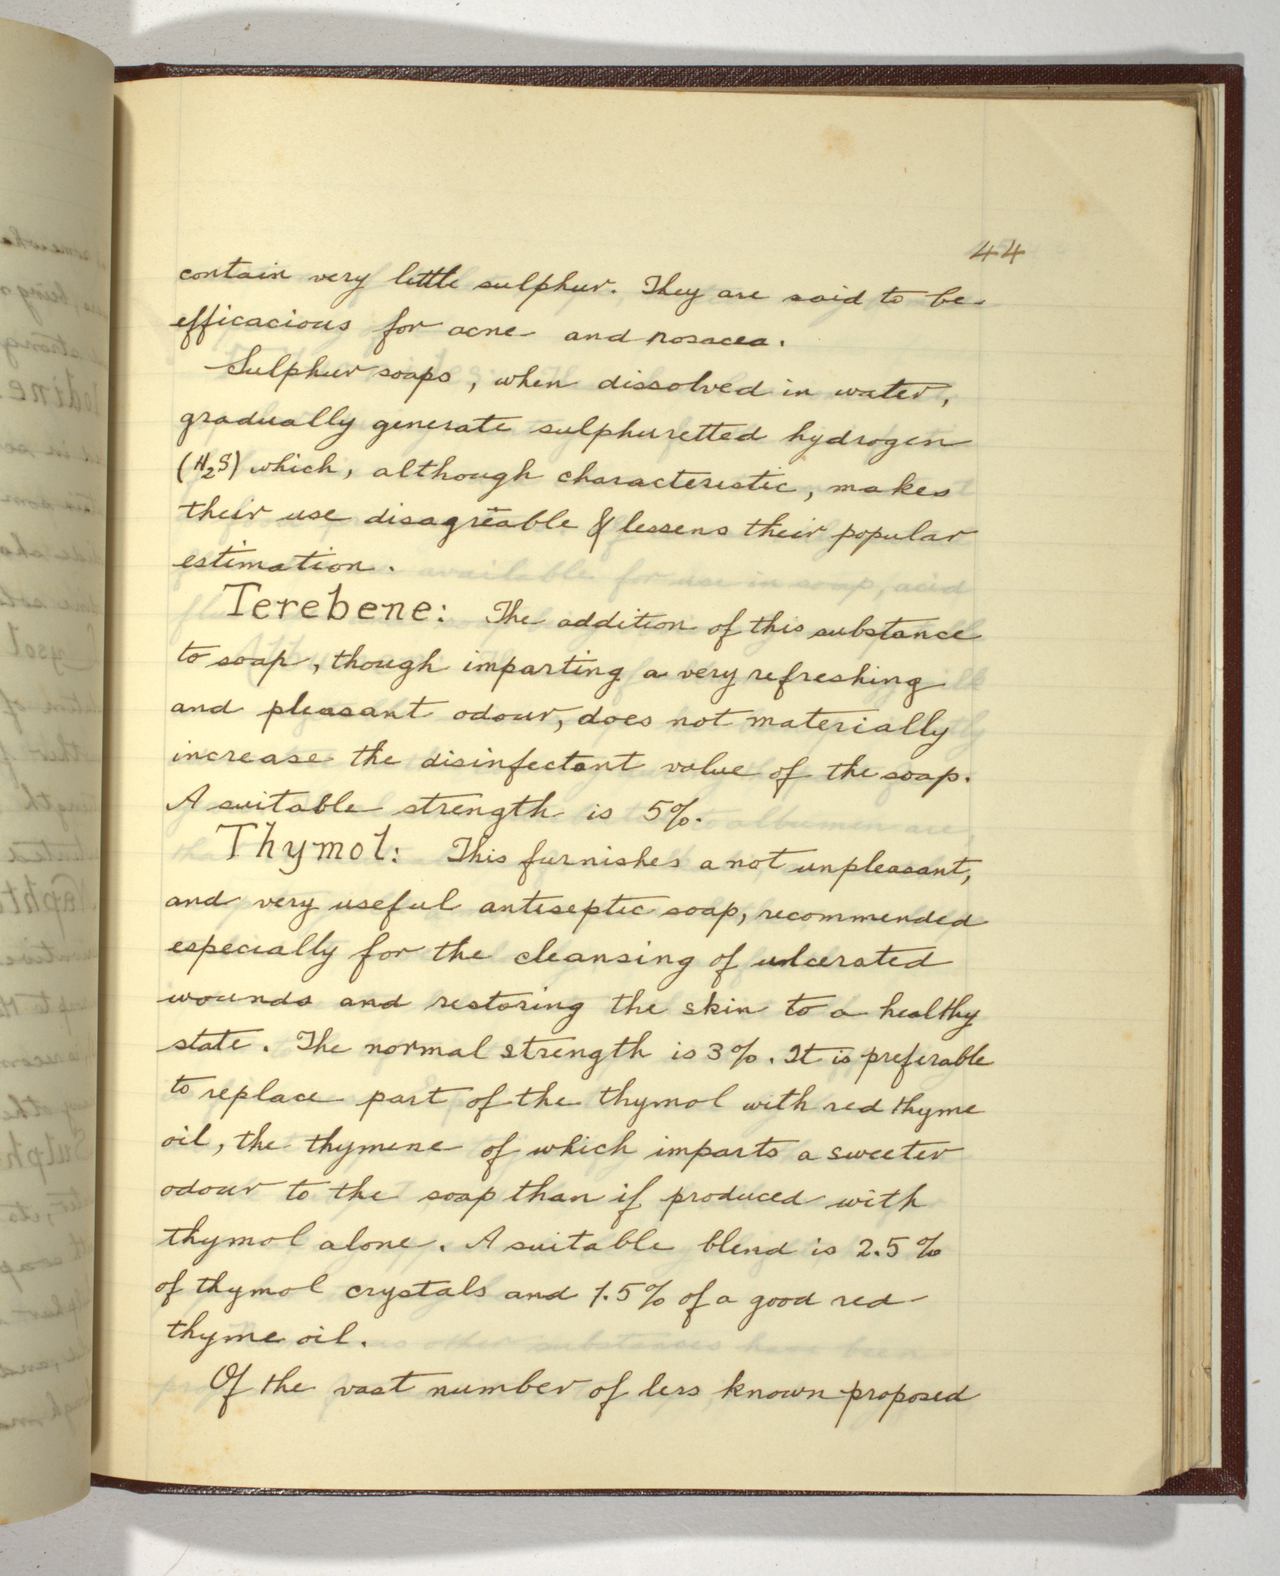 44
contain very little sulphur. They are said to be
efficacious for acne and rosacea.
Sulphur soaps, when dissolved in water,
gradually generate sulphuretted hydrogen
(H₂S) which, although characteristic, makes
their use disagreable & lessens their popular
estimation.
Terebene: The addition of this substance
to soap, though imparting a very refreshing
and pleasant odour, does not materially
increase the disinfectant value of the soap.
A suitable strength is 5%.
Thymol: This furnishes a not unpleasant,
and very useful antiseptic soap, recommended
especially for the cleansing of ulcerated
wounds and restoring the skin to a healthy
state. The normal strength is 3%. It is preferable
to replace part of the thymol with red thyme
oil, the thymene of which imparts a sweeter
odour to the soap than if produced with
thymol alone. A suitable blend is 2.5%
of thymol crystals and 1.5% of a good red
thyme oil.
Of the vast number of less known proposed